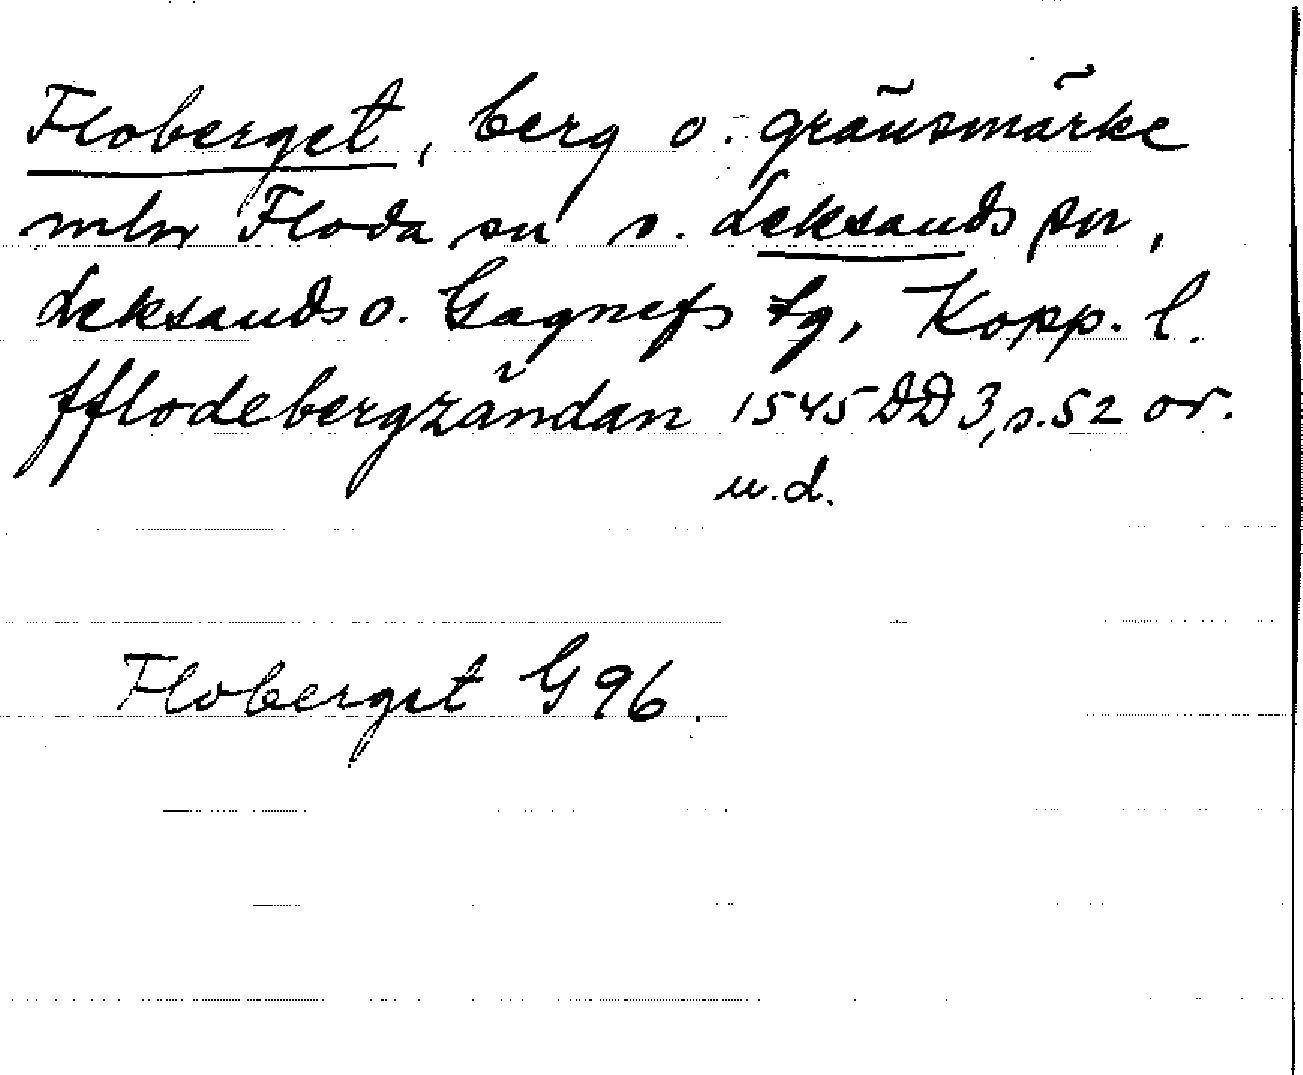 Floberget, berg o. gränsmärke
mln Floda sn o. Leksands sn,
Leksands o. Gagnefs tg, Kopp. l.
fflodebergzändan 1545 DD 3, s. 52 or.
u.d.
Floberget G 96.